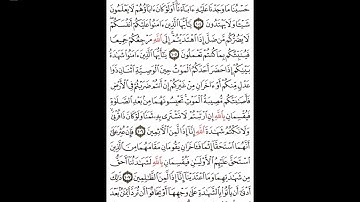 حَسْبُنَا مَا وَجَدْنَا عَلَيْهِ ءَابَآءَنَآ أَوَلَوْ كَانَ ءَابَآؤُهُمْ لَا يَعْلَمُونَ
شَيْـًٔا وَلَا يَهْتَدُونَ ١٠٤ يَـٰٓأَيُّهَا ٱلَّذِينَ ءَامَنُوا۟ عَلَيْكُمْ أَنفُسَكُمْ
لَا يَضُرُّكُم مَّن ضَلَّ إِذَا ٱهْتَدَيْتُمْ إِلَى ٱللَّهِ مَرْجِعُكُمْ جَمِيعًا
فَيُنَبِّئُكُم بِمَا كُنتُمْ تَعْمَلُونَ ١٠٥ يَـٰٓأَيُّهَا ٱلَّذِينَ ءَامَنُوا۟ شَهَـٰدَةُ
بَيْنِكُمْ إِذَا حَضَرَ أَحَدَكُمُ ٱلْمَوْتُ حِينَ ٱلْوَصِيَّةِ ٱثْنَانِ ذَوَا
عَدْلٍ مِّنكُمْ أَوْ ءَاخَرَانِ مِنْ غَيْرِكُمْ إِنْ أَنتُمْ ضَرَبْتُمْ فِى ٱلْأَرْضِ
فَأَصَـٰبَتْكُم مُّصِيبَةُ ٱلْمَوْتِ تَحْبِسُونَهُمَا مِنۢ بَعْدِ ٱلصَّلَوٰةِ
فَيُقْسِمَانِ بِٱللَّهِ إِنِ ٱرْتَبْتُمْ لَا نَشْتَرِى بِهِۦ ثَمَنًا وَلَوْ كَانَ ذَا قُرْبَىٰ
وَلَا نَكْتُمُ شَهَـٰدَةَ ٱللَّهِ إِنَّآ إِذًا لَّمِنَ ٱلْـَٔاثِمِينَ ١٠٦ فَإِنْ عُثِرَ عَلَىٰٓ
أَنَّهُمَا ٱسْتَحَقَّآ إِثْمًا فَـَٔاخَرَانِ يَقُومَانِ مَقَامَهُمَا مِنَ ٱلَّذِينَ
ٱسْتَحَقَّ عَلَيْهِمُ ٱلْأَوْلَيَـٰنِ فَيُقْسِمَانِ بِٱللَّهِ لَشَهَـٰدَتُنَآ أَحَقُّ
مِن شَهَـٰدَتِهِمَا وَمَا ٱعْتَدَيْنَآ إِنَّآ إِذًا لَّمِنَ ٱلظَّـٰلِمِينَ ١٠٧ ذَٰلِكَ
أَدْنَىٰٓ أَن يَأْتُوا۟ بِٱلشَّهَـٰدَةِ عَلَىٰ وَجْهِهَآ أَوْ يَخَافُوٓا۟ أَن تُرَدَّ أَيْمَـٰنٌۢ بَعْدَ